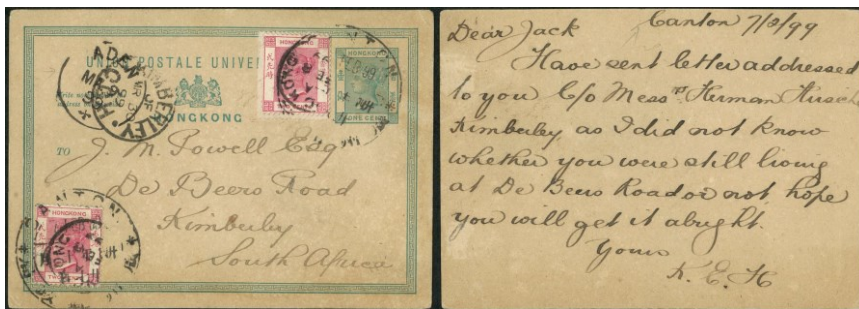 UNION POSTALE UNIVER
HONGKONG
HONGKONG
ONE CENT
ADEN
KIMBERLEY
CANTON
TO
J. M. Powell Esq
De Beers Road
Kimberley
South Africa
HONGKONG
CANTON
Canton 7/2/99
Dear Jack
Have sent letter addressed
to you C/o Messrs Herman Hirsch
Kimberley as I did not know
whether you were still living
at De Beers Road or not hope
you will get it alright.
Yours
K. E. H